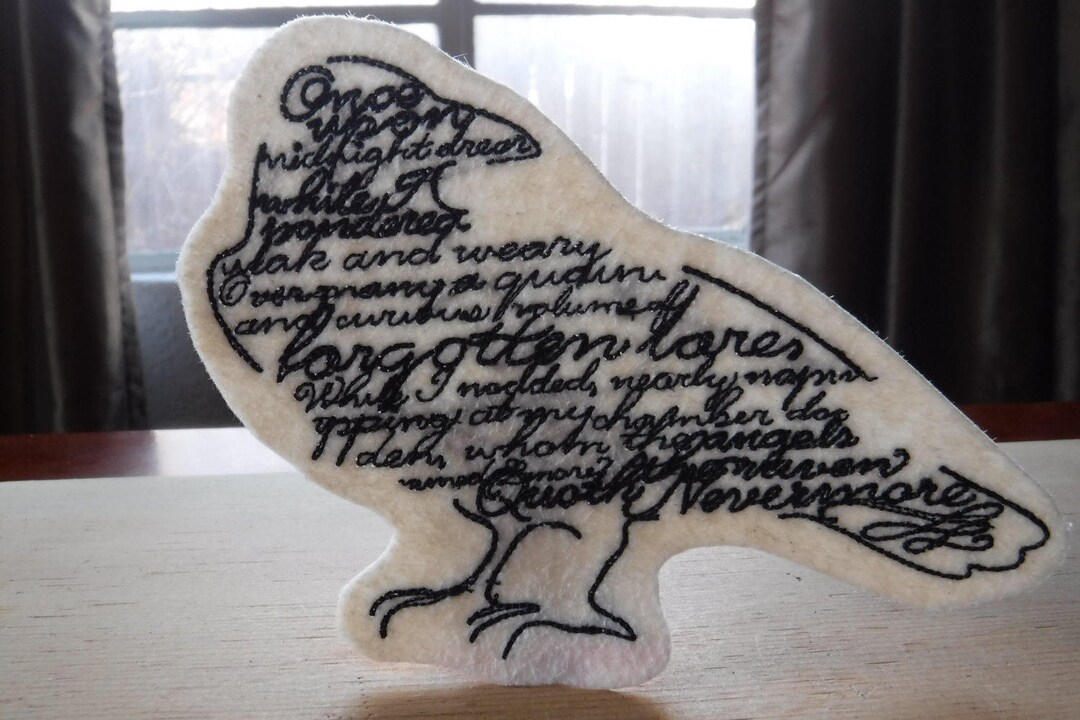 Once
upon
midnight drear
while I
pondered
weak and weary
Over many a
and curious volume of
forgotten lores
While I nodded, nearly napin
pping at my chamber doo
den, whom the angels
named
the raven
Quoth Nevermore